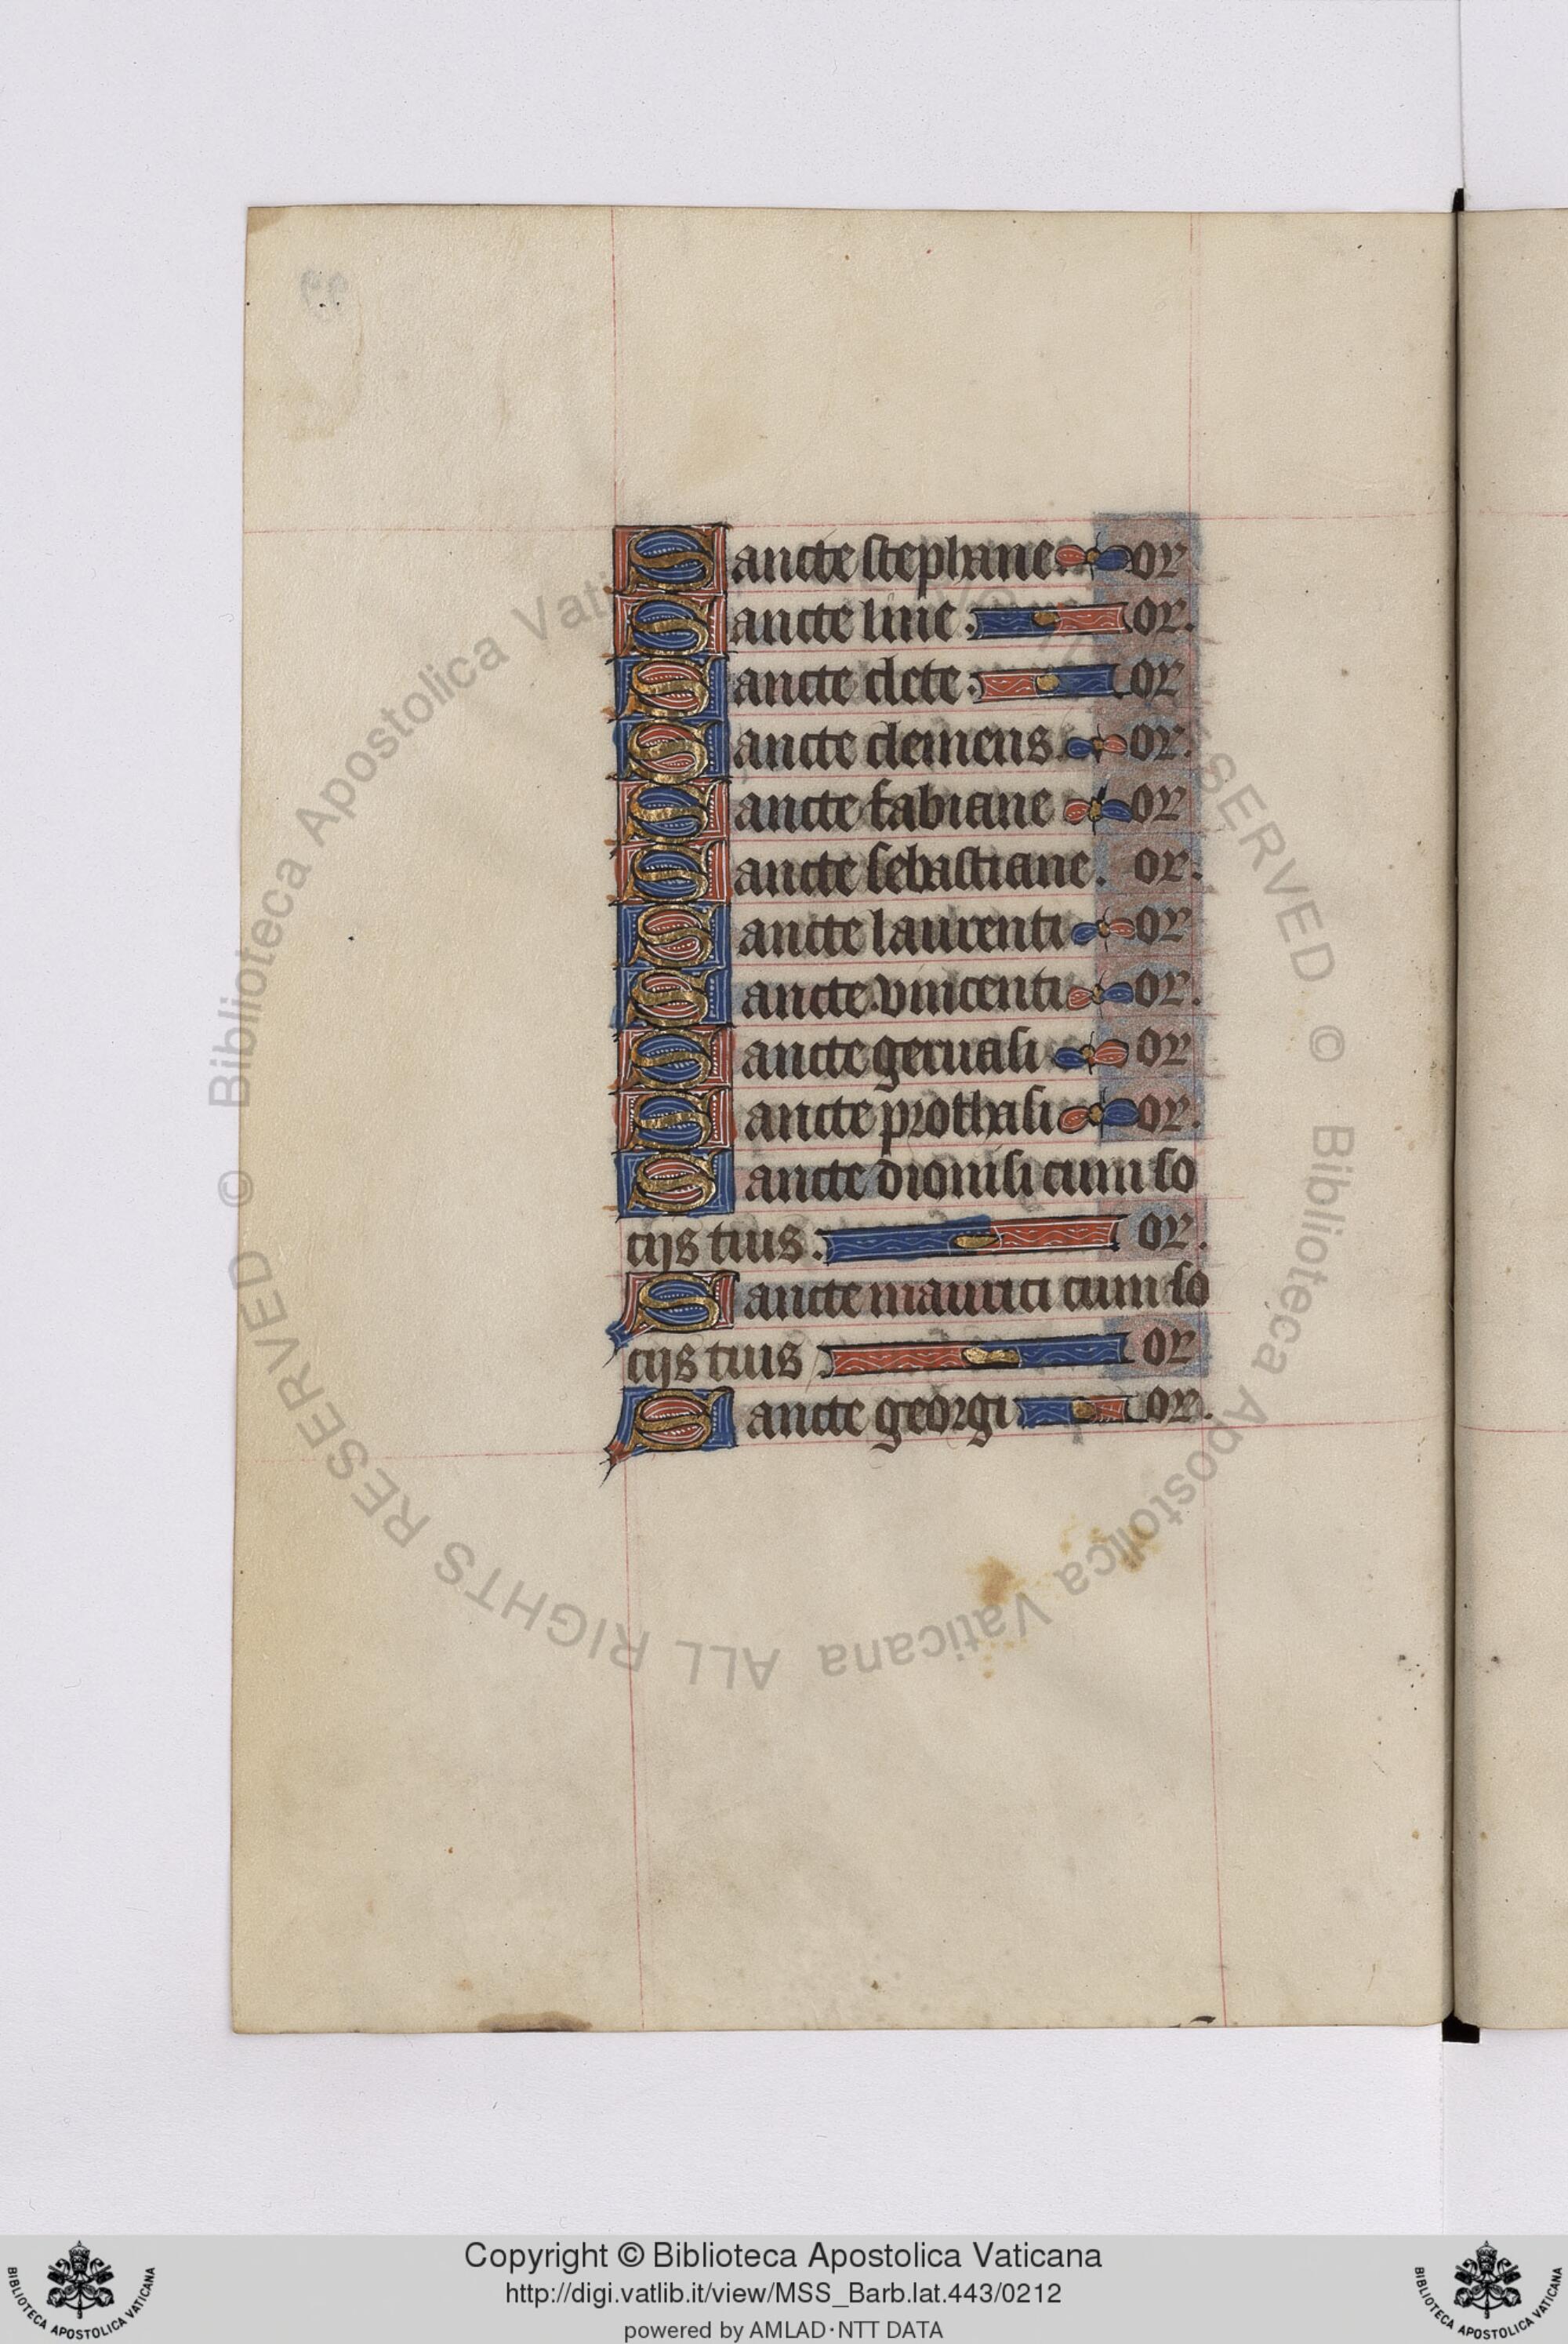 Sancte stephane. or
Sancte line. or.
Sancte clete. or
Sancte clemens. or.
Sancte fabiane or
Sancte sebastiane. or.
Sancte laurenti or
Sancte vincenti or.
Sancte geruasi or
Sancte prothasi or.
Sancte dionisi cum so
cijs tuis. or.
Sancte maurici cum so
cijs tuis or
Sancte georgi or.
© Biblioteca Apostolica Vaticana ALL RIGHTS RESERVED © Biblioteca Apostolica Vaticana ALL RIGHTS RESERVED
Copyright © Biblioteca Apostolica Vaticana
http://digi.vatlib.it/view/MSS_Barb.lat.443/0212
powered by AMLAD·NTT DATA
BIBLIOTECA APOSTOLICA VATICANA
BIBLIOTECA APOSTOLICA VATICANA